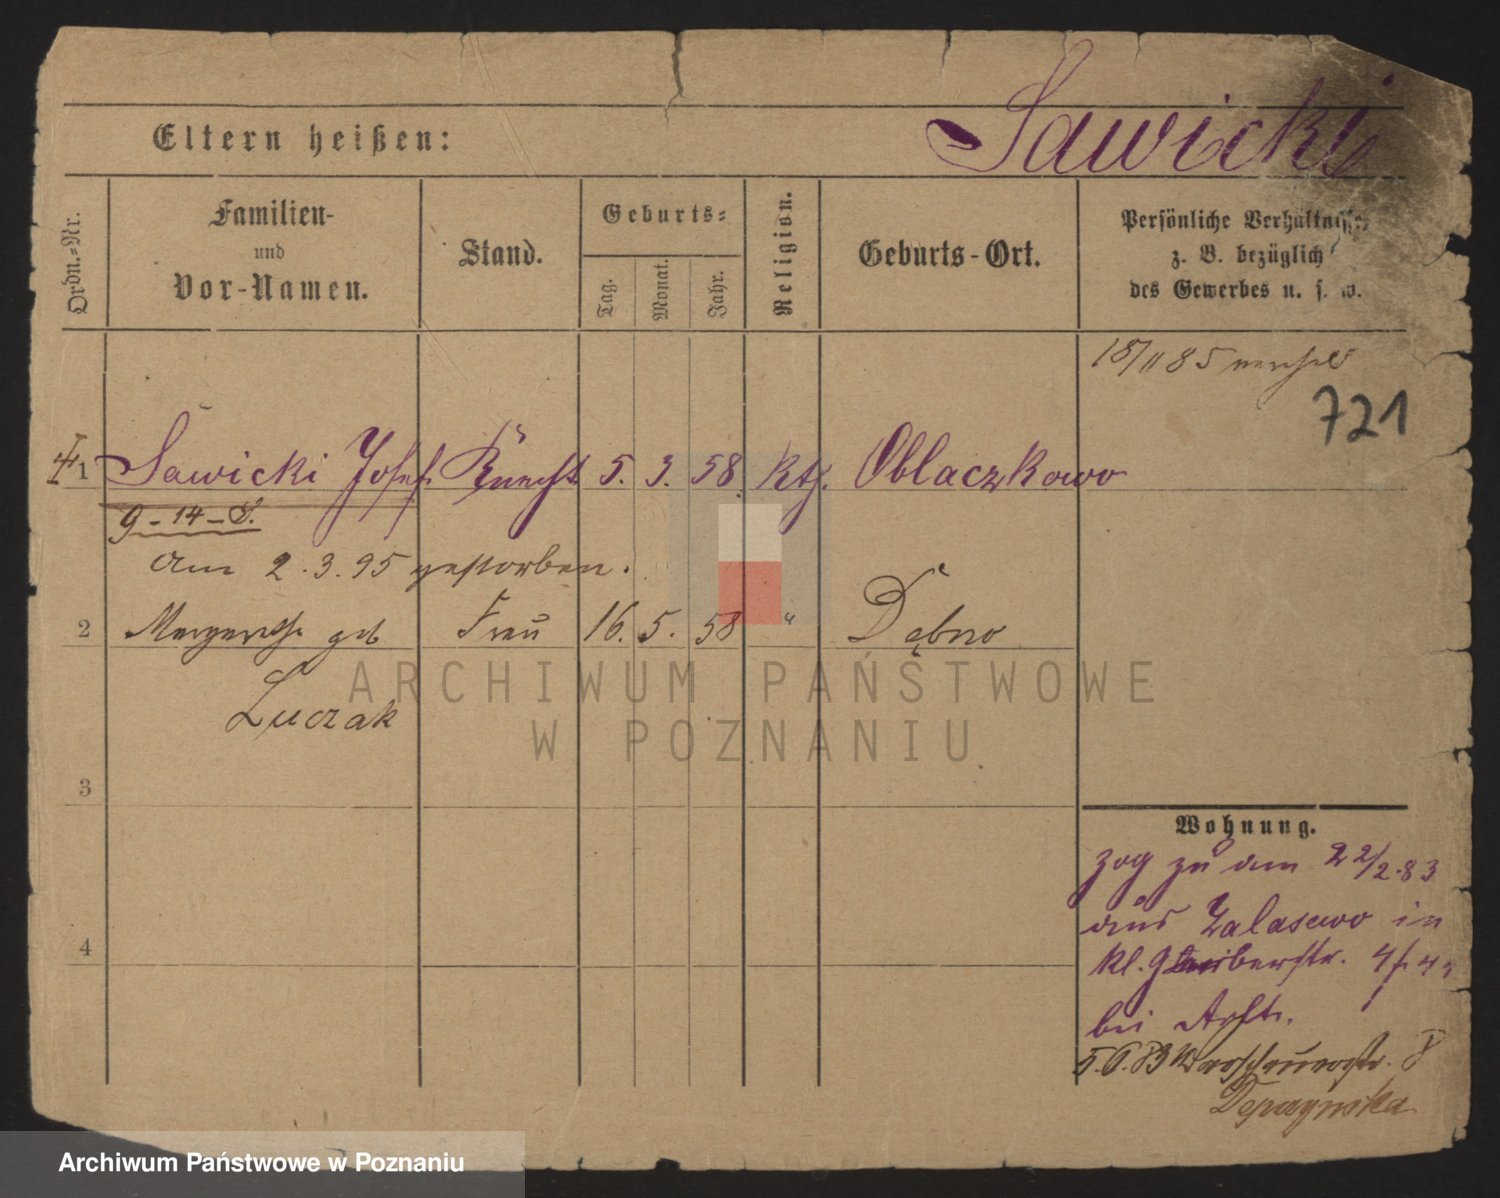 Sawicki
Eltern heißen:
Ordn.-Nr.
Familien-
und
Vor-Namen.
Stand.
Geburts-
Tag.
Monat.
Jahr.
Religion.
Geburts-Ort.
Persönliche Verhältnisse
z. B. bezüglich
des Gewerbes u. s. w.
18/11 85
721
1 Sawicki Josef Knecht 5. 3. 58. kth. Oblaczkowo
9-14-8.
am 2.3.95 gestorben.
2 Margareth geb Frau 16. 5. 58 " Dębno
Luczak
3
4
Wohnung.
zog zu am 22/2.83
aus Zalasewo in
kl. Gerberstr. 4
bei
5.6.83 Warschauerstr. 8
ARCHIWUM PAŃSTWOWE
W POZNANIU
Archiwum Państwowe w Poznaniu